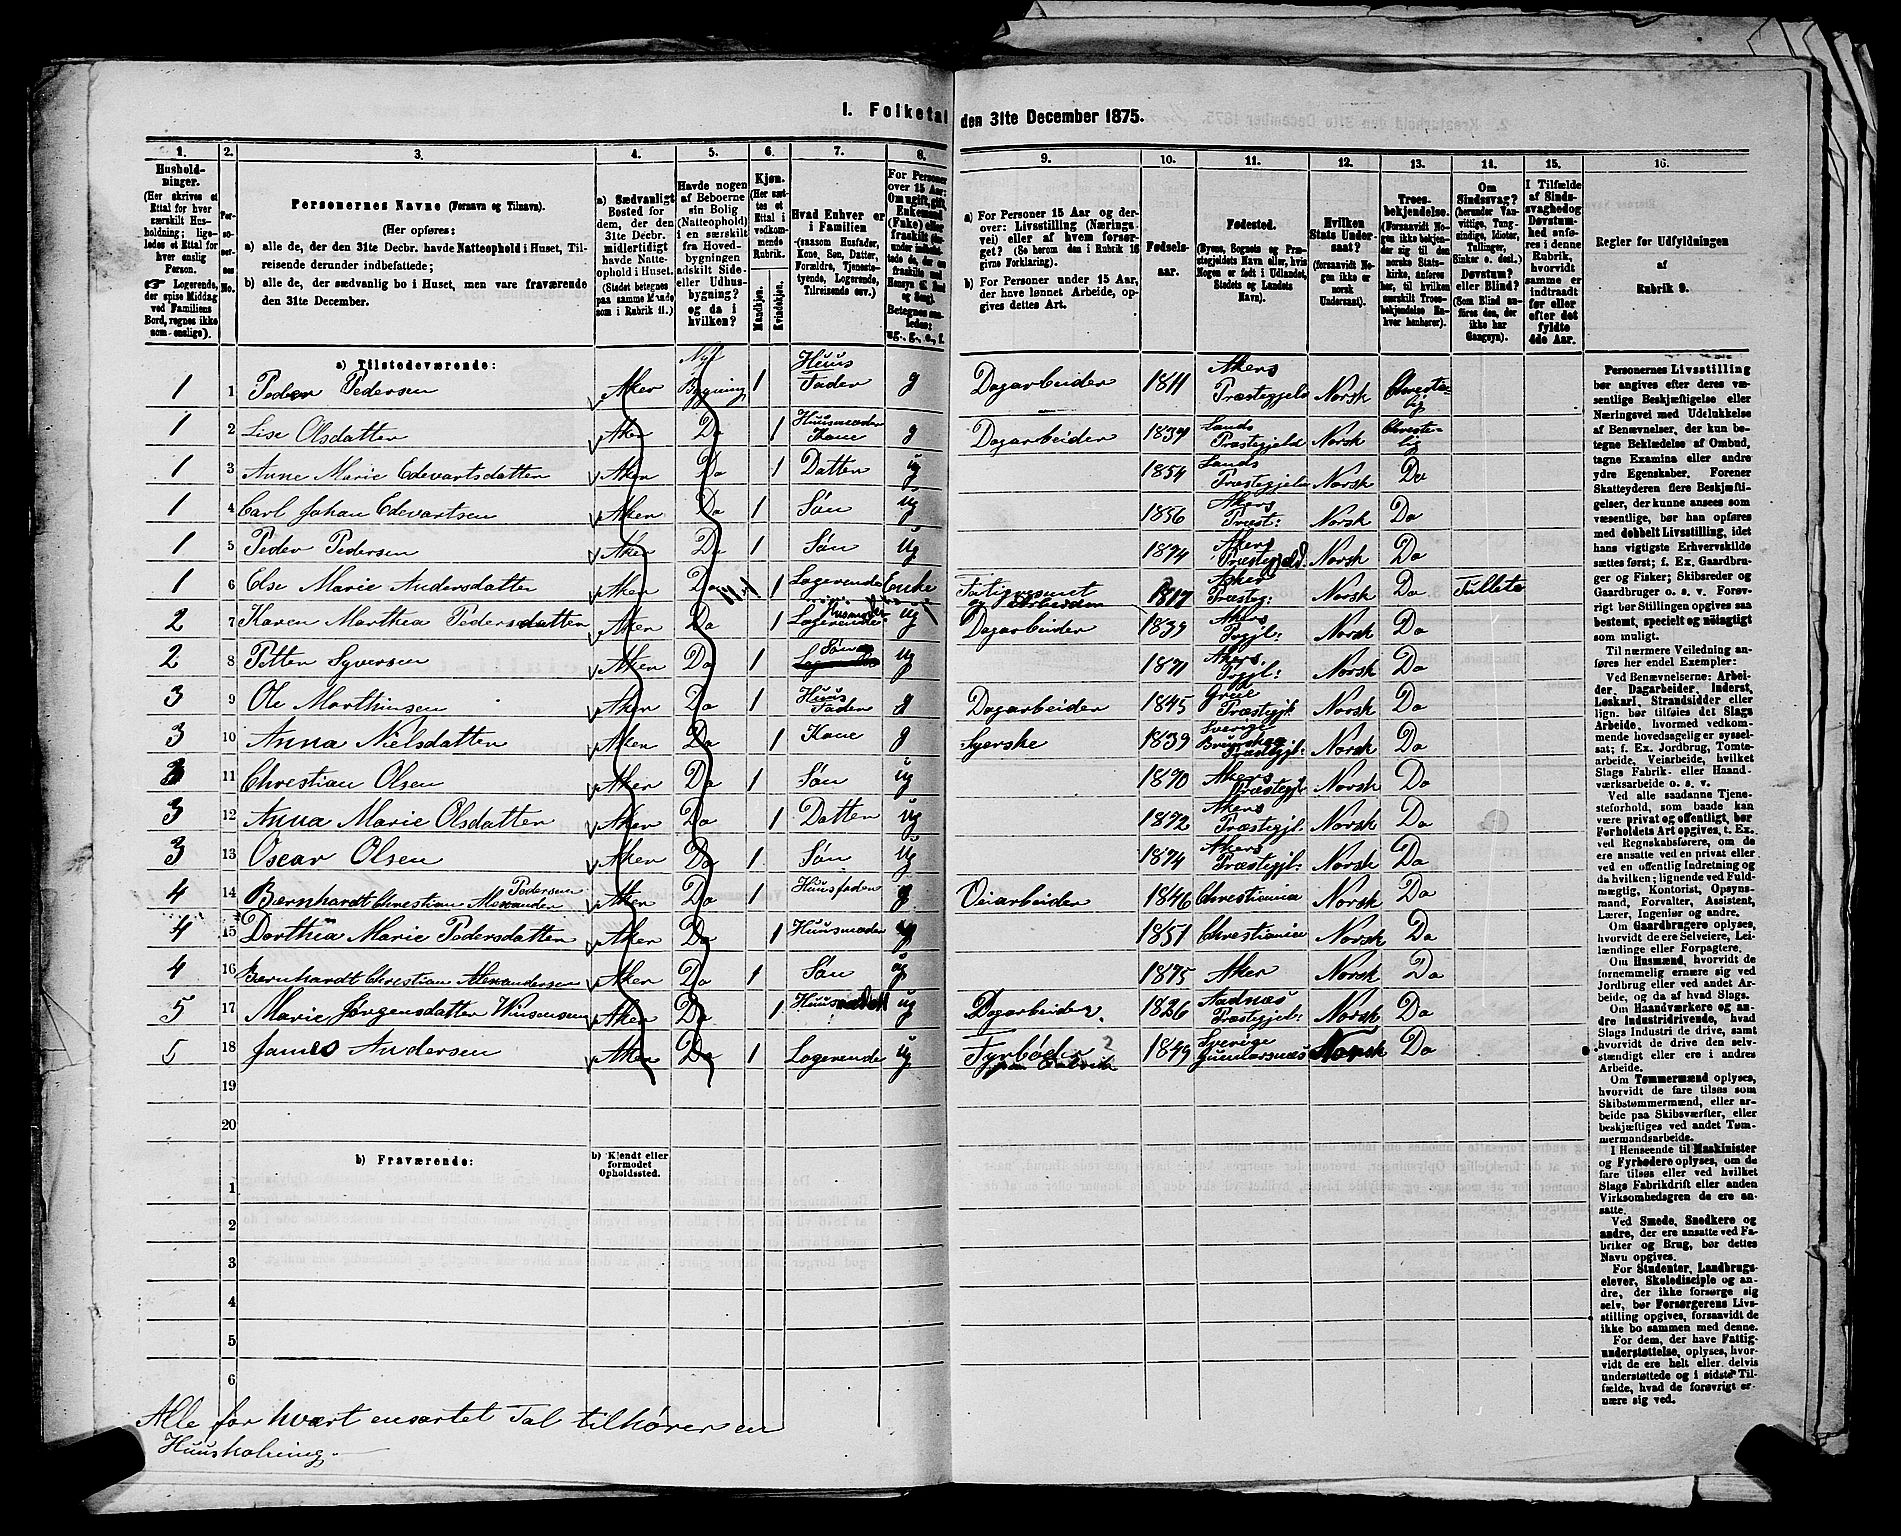 I. Folketal den 31te December 1875.
1. 2. 3. 4. 5. 6. 7. 8. 9. 10. 11. 12. 13. 14. 15. 16.
Husholdninger. (Her skrives et Ettal for hver særskilt Husholdning; ligeledes et Ettal for hver enslig Person. Logerende, der spise Middag ved Familiens Bord, regnes ikke som enslige).
Personernes No.
Personernes Navne (Fornavn og Tilnavn).
(Her opføres:
a) alle de, der den 31te Decbr. havde Natteophold i Huset, Tilreisende derunder indbefattede;
b) alle de, der sædvanlig bo i Huset, men vare fraværende den 31te December.
a) Sædvanligt Bosted for dem, der den 31te Decbr. midlertidigt havde Natteophold i Huset. (Stedet betegnes paa samme Maade som i Rubrik 11.)
Havde nogen af Beboerne sin Bolig (Natteophold) i en særskilt fra Hovedbygningen adskilt Side- eller Udhusbygning? og da i hvilken?
Kjøn. (Her sættes et Ettal i vedkommende Rubrik. Mandkjøn. Kvindekjøn.
Hvad Enhver er i Familien (saasom Husfader, Kone, Søn, Datter, Forældre, Tjenestetyende, Logerende, Tilreisende osv.)
For Personer over 15 Aar: Om ugift, gift, Enkemand (Enke) eller fraskilt
Betegnes saaledes: ug., g., e., f.
a) For Personer 15 Aar og derover: Livsstilling (Næringsvei) eller af hvem forsørget? (Se herom den i Rubrik 16 givne Forklaring).
b) For Personer under 15 Aar, der have lønnet Arbeide, opgives dettes Art.
Fødselsaar.
Fødested. (Byens, Sognets og Præstegjeldets Navn eller, hvis Nogen er født i Udlandet, Stedets og Landets Navn).
Hvilken Stats Undersaat? (forsaavidt Nogen ikke er norsk Undersaat).
Troesbekjendelse. (Forsaavidt Nogen ikke bekjender sig til den norske Statskirke, anføres her, til hvilken særskilt Troesbekjendelse Enhver henhører).
Om Sindssvag? (herunder Vanvittige, Tungsindige, Idioter, Tullinger, Sinker o. desl.) Døvstum? eller Blind? (Som Blind anføres den, der ikke har Gangsyn).
I Tilfælde af Sindssvaghed og Døvstumhed anføres i denne Rubrik, hvorvidt samme er indtraadt før eller efter det fyldte 4de Aar.
Regler for Udfyldningen af Rubrik 9.
a) Tilstedeværende:
1 1 Peder Pedersen Aker Bygning 1 Huus Fader g Dagarbeider 1811 Akers Præstegjeld Norsk Christelig
1 2 Lise Olsdatter Aker Do 1 Huusmoder Kone g Dagarbeider Lands Præstegjeld Norsk Christelig
1 3 Anne Marie Edevartsdatter Aker Do 1 Datter ug 1854 Lands Præstegjeld Norsk Do
1 4 Carl Johan Edevartsen Aker Do 1 Søn ug 1856 Akers Præst: Norsk Do
1 5 Peder Pedersen Aker Do 1 Søn ug 1874 Akers Præstegjeld: Norsk Do
1 6 Else Marie Andersdatter Aker Do 1 Logerende Enke 1817 Præsteg: Norsk Do Tullete
2 7 Karen Marthea Pedersdatter Aker Do 1 Logerende ug Dagarbeider 1839 Akers Prgjl: Norsk Do
2 8 Petter Syversen Aker Do 1 Søn ug 1871 Akers Prgjl: Norsk Do
3 9 Ole Marthinsen Aker Do 1 Huus Fader g Dagarbeider 1845 Præstegjl. Norsk Do
3 10 Anna Nielsdatter Aker Do 1 Kone g Syerske 1839 Sverige Præstegjl: Norsk Do
3 11 Christian Olsen Aker Do 1 Søn ug 1870 Akers Præstegjl: Norsk Do
3 12 Anna Marie Olsdatter Aker Do 1 Datter ug 1872 Akers Præstegjl: Norsk Do
3 13 Oscar Olsen Aker Do 1 Søn ug 1874 Akers Præstegjl: Norsk Do
4 14 Bernhardt Christian Alexander Pedersen Aker Do 1 Huusfader g Veiarbeider 1846 Christiania Norsk Do
4 15 Dorthea Marie Pedersdatter Aker Do 1 Huusmoder g 1851 Christiania Norsk Do
4 16 Bernhardt Christian Alexandersen Aker Do 1 Søn ug 1875 Aker Norsk Do
5 17 Marie Jørgensdatter Aker Do 1 ug Dagarbeider 1826 Aadnæs Præstegjel: Norsk Do
5 18 James Andersen Aker Do 1 Logerende ug Fyrbøder 1849 Sverige Gunnarsnæs Norsk Do
19
20
b) Fraværende:
b) Kjendt eller formodet Opholdssted.
1
2
3
4
5
6
Alle for hvært ensartet Tal tilhører en
Huusholning.
Personernes Livsstilling
bør angives efter deres væ-
sentlige Beskjæftigelse eller
Næringsvei med Udelukkelse
af Benævnelser, der kun be-
tegne Beklædelse af Ombud,
tagne Examina eller andre
ydre Egenskaber. Forener
Skatteyderen flere Beskjæfti-
gelser, der kunne ansees som
væsentlige, bør han opføres
med dobbelt Livsstilling, idet
hans vigtigste Erhvervskilde
sættes først; f. Ex. Gaardbru-
ger og Fisker; Skibsreder og
Gaardbruger o. s. v. Forøv-
rigt bør Stillingen opgives saa
bestemt, specielt og nøiagtigt
som muligt.
Til nærmere Veiledning an-
føres her endel Exempler:
Ved Benævnelserne: Arbei-
der, Dagarbeider, Inderst,
Løskarl, Strandsidder eller
lign. bør tilføies det Slags
Arbeide, hvormed vedkom-
mende hovedsagelig er syssel-
sat; f. Ex. Jordbrug, Tomte-
arbeide, Veiarbeide, hvilket
Slags Fabrik- eller Haand-
værksarbeide o. s. v.
Ved alle saadanne Tjene-
steforhold, som baade kan
være privat og offentligt, bør
Forholdets Art opgives, t. Ex.
ved Regnskabsførere, om de
ere ansatte ved en privat eller
ved en offentlig Indretning og
da hvilken; lignende ved Fuld-
mægtig, Kontorist, Opsyns-
mand, Forvalter, Assistent,
Lærer, Ingeniør og andre.
Om Gaardbrugere oplyses,
hvorvidt de ere Selveiere, Lei-
lændinge eller Forpagtere.
Om Husmænd, hvorvidt de
fornemmelig ernære sig ved
Jordbrug eller ved andet Ar-
beide, og da af hvad Slags.
Om Haandværkere og an-
dre Industridrivende, hvad
Slags Industri de drive, samt
hvorvidt de drive den selv-
stændigt eller ere i andres
Arbeide.
Om Tømmermænd oplyses,
hvorvidt de fare tilsøs som
Skibstømmermænd, eller ar-
beide paa Skibsværfter, eller
beskjæftiges ved andet Tøm-
mermandsarbeide.
I Henseende til Maskinister
og Fyrbødere oplyses, om de
fare tilsøs eller ved hvilket
Slags Fabrikdrift eller anden
Virksomhedsgren de ere an-
satte.
Ved Smede, Snedkere og
andre, der ere ansatte ved Fa-
briker og Brug, bør dettes
Navn opgives.
For Studenter, Landbrugs-
elever, Skoledisciple og an-
dre, der ikke forsørge sig
selv, bør Forsørgerens Livs-
stilling opgives, forsaavidt de
ikke bo sammen med denne.
For dem, der have Fattig-
understøttelse, oplyses, hvor-
vidt de ere helt eller delvis
understøttede og i sidste Til-
fælde, hvad de forøvrigt er-
nære sig ved.